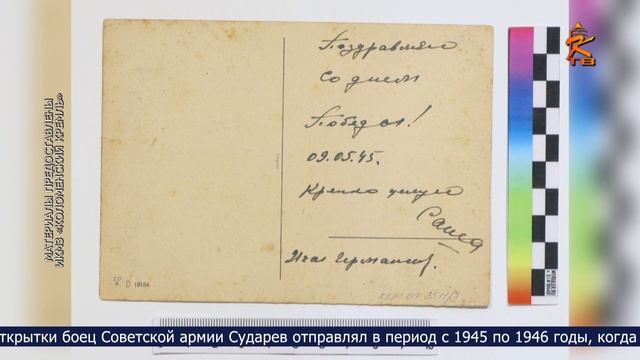 МАТЕРИАЛЫ ПРЕДОСТАВЛЕНЫ
ИКМВ «КОЛОМЕНСКИЙ КРЕМЛЬ»
КТВ
Поздравляю
Со днем
Победы!
09.05.45.
Крепко целую
Саша
D 18104
ткрытки боец Советской армии Сударев отправлял в период с 1945 по 1946 годы, когда